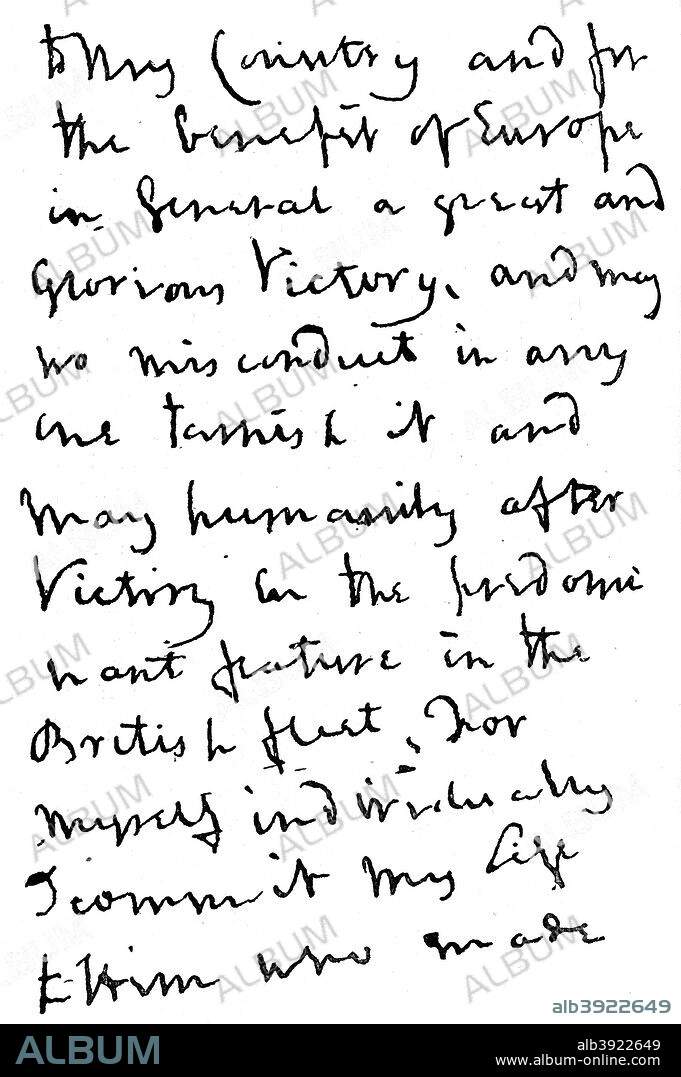 to My Country and for
the benefit of Europe
in General a great and
Glorious Victory, and may
no misconduct in any
one tarnish it and
May humanity after
Victory be the predomi
nant feature in the
British fleet, For
Myself individually
I commit my Life
to Him who made
alb3922649
ALBUM
alb3922649
www.album-online.com